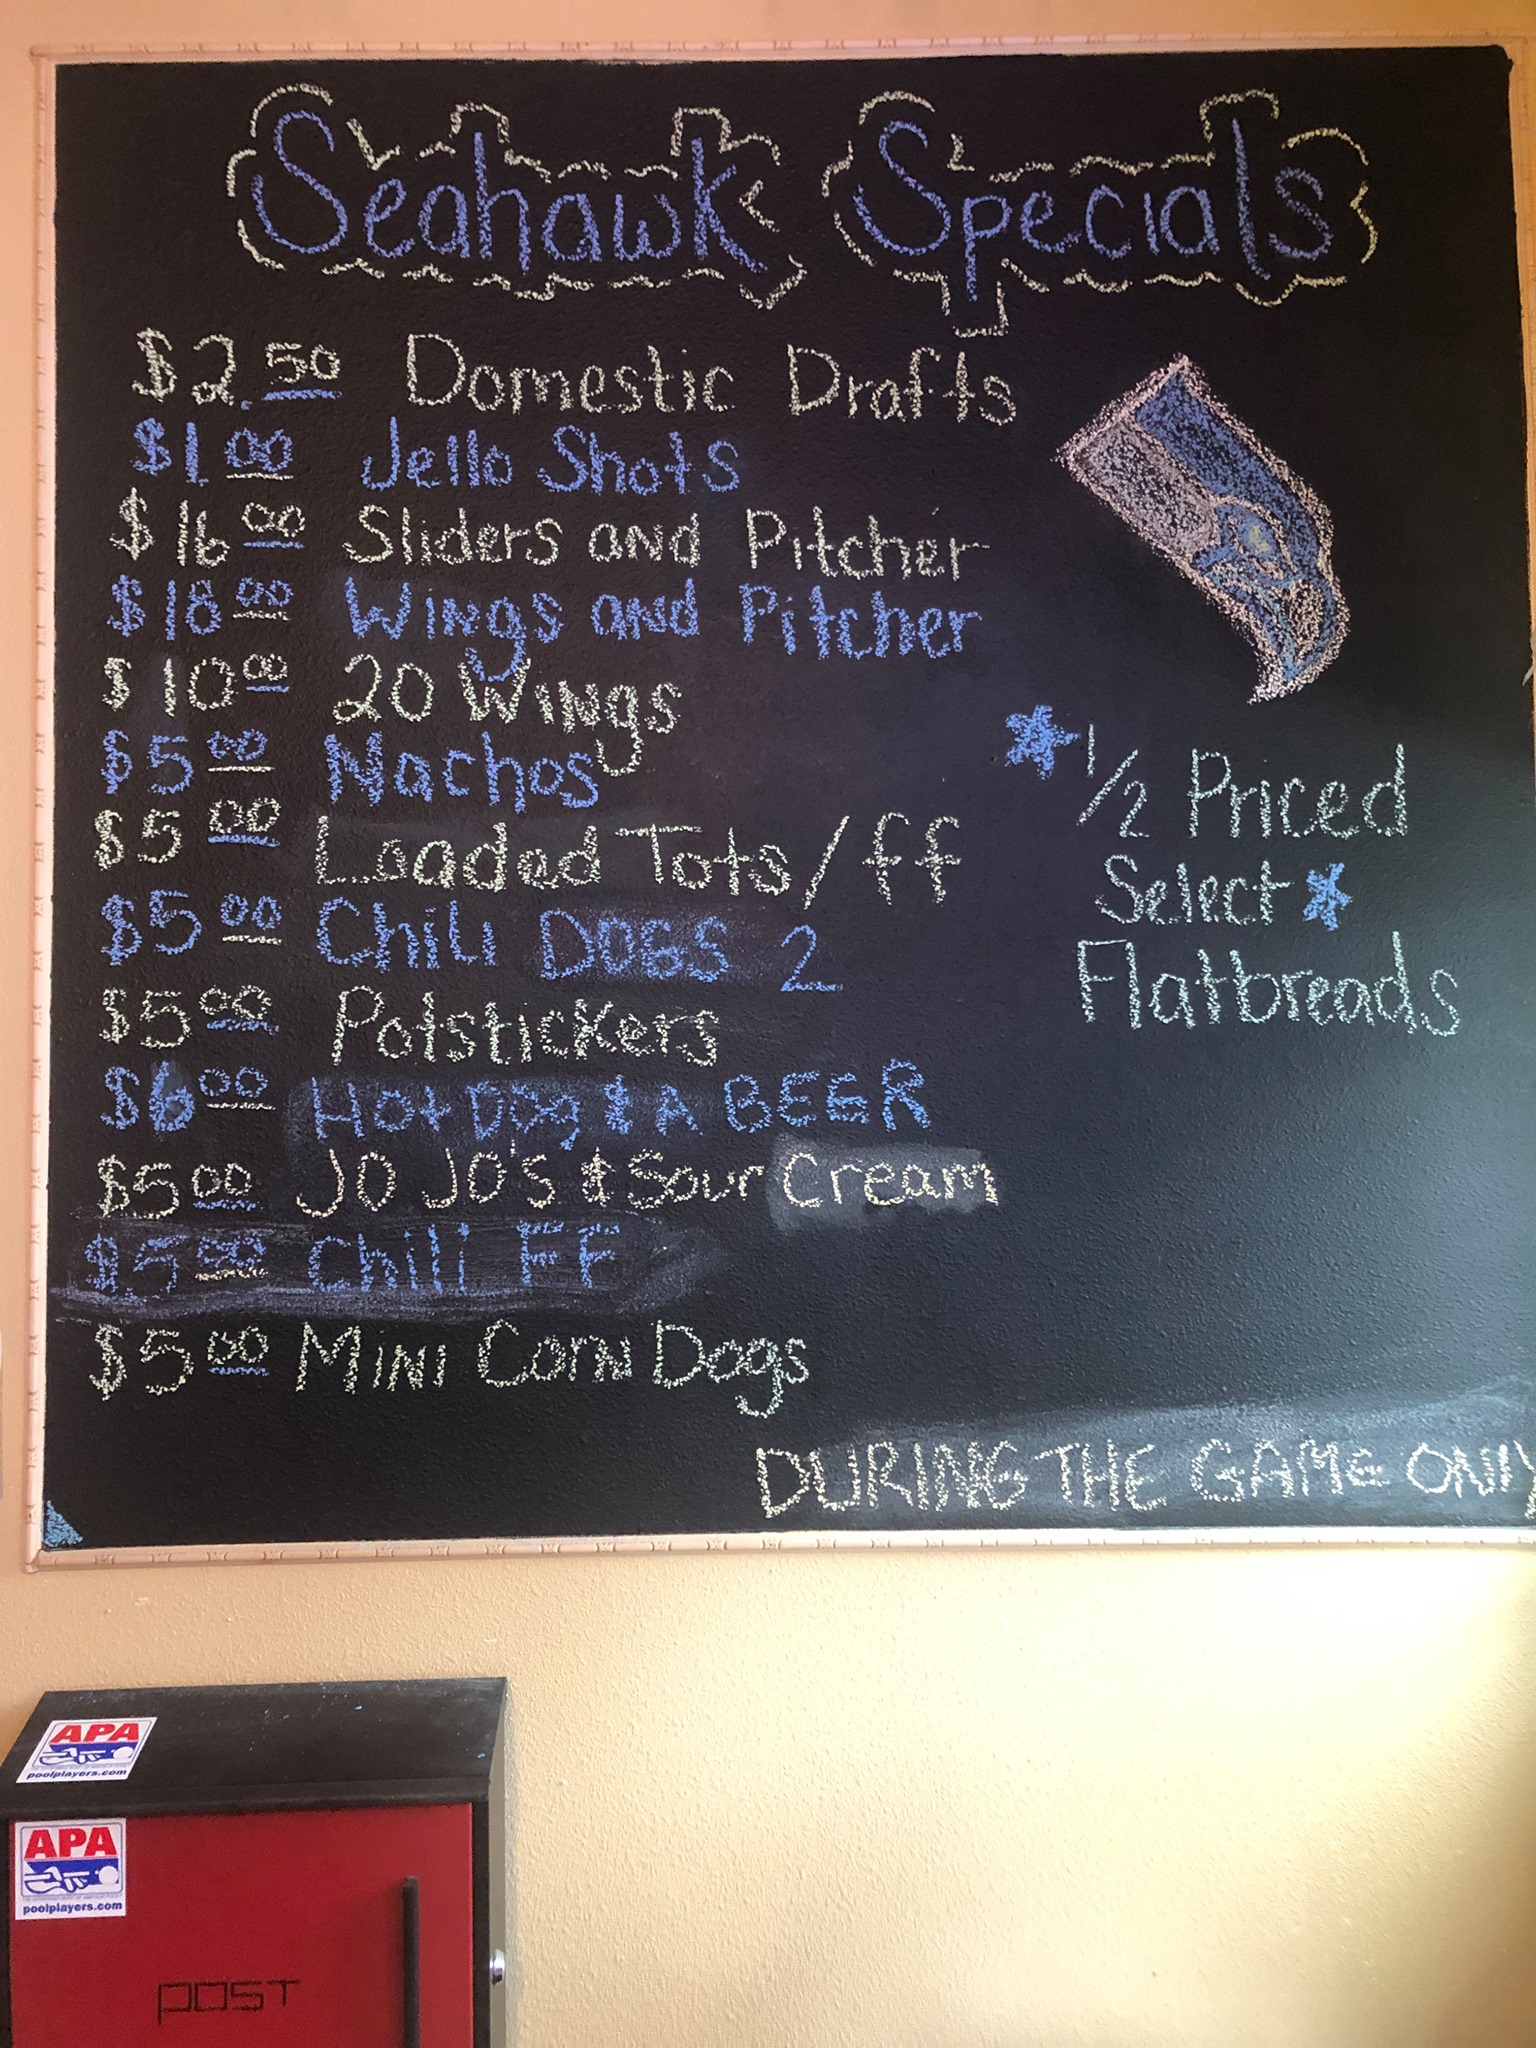 Seahawk Specials
$2.50 Domestic Drafts
$1.00 Jello Shots
$16.00 Sliders and Pitcher
$18.00 Wings and Pitcher
$10.00 20 Wings
$5.00 Nachos
$5.00 Loaded Tots/ff
$5.00 Chili DOGS 2
$5.00 Potstickers
$6.00 Hot Dog & A BEER
$5.00 JO JO's & Sour Cream
$5.00 Chili FF
$5.00 Mini Corn Dogs
1/2 Priced
Select
Flatbreads
DURING THE GAME ONLY
APA
poolplayers.com
APA
poolplayers.com
POST